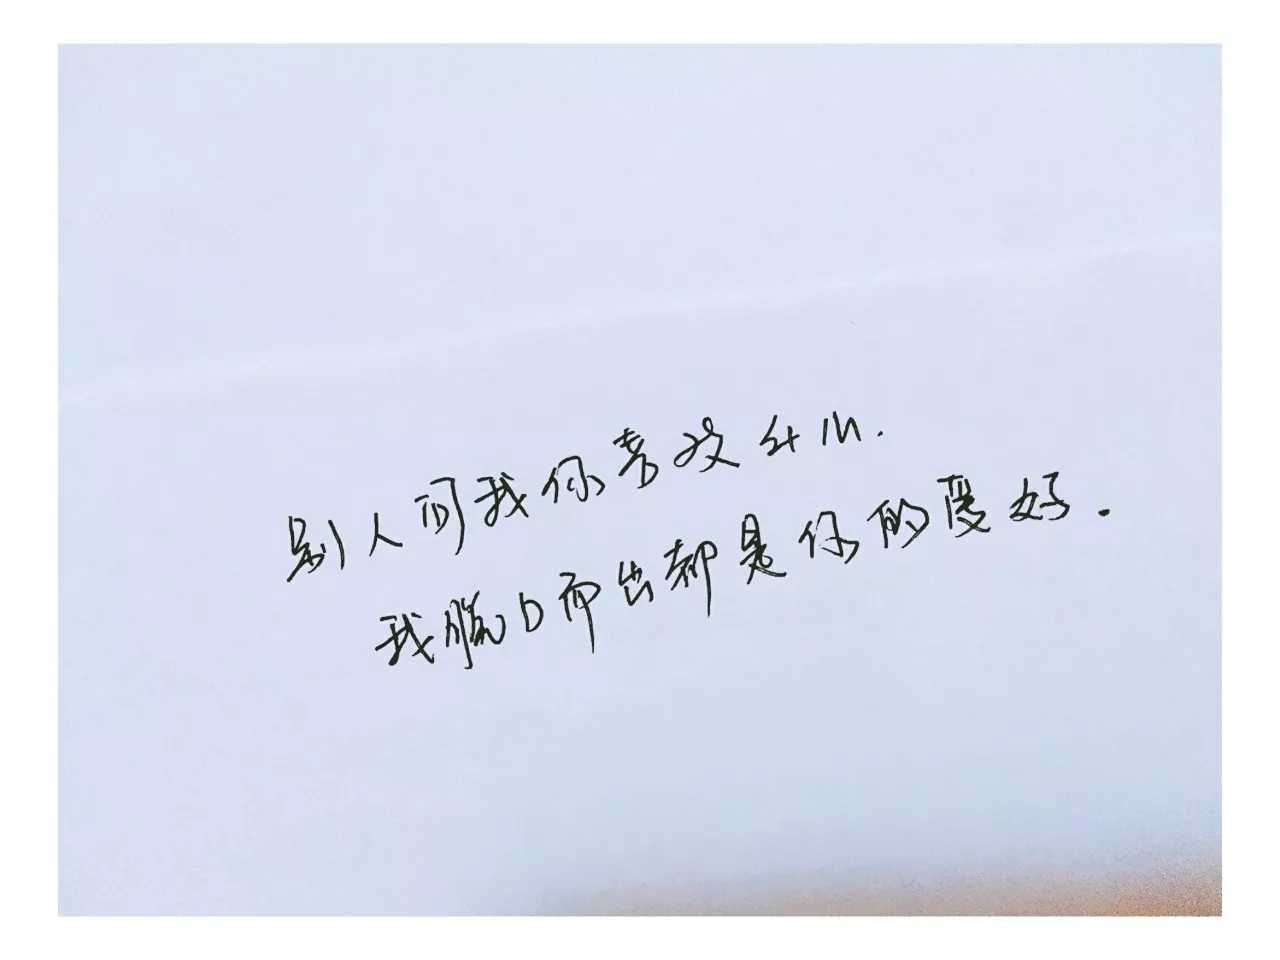 别人问我你喜欢什么.
我脱口而出都是你的爱好.